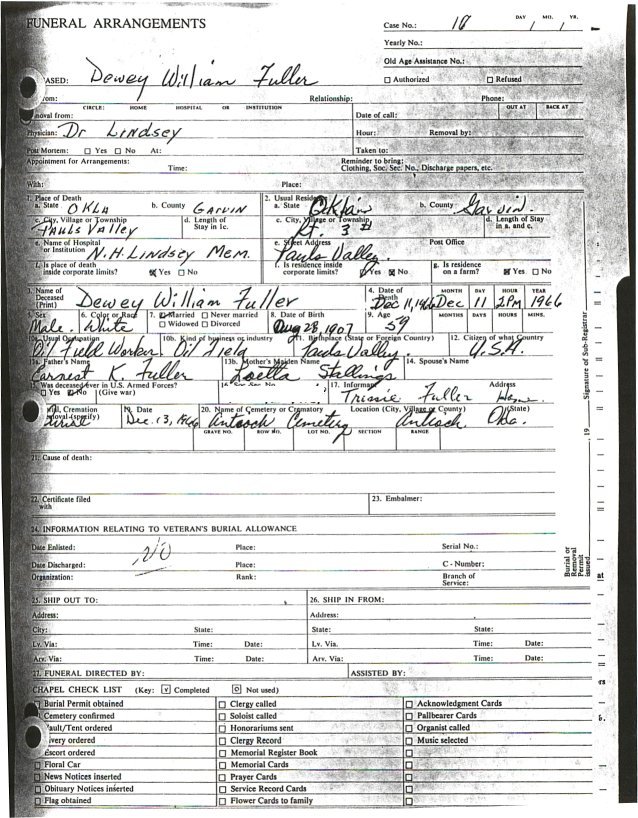 FUNERAL ARRANGEMENTS
Case No.: 18 DAY / MO. / YR.
Yearly No.:
Old Age Assistance No.:
ASED: Dewey William Fuller
☐ Authorized ☐ Refused
rom: Relationship: Phone:
CIRCLE: HOME HOSPITAL OR INSTITUTION OUT AT BACK AT
moval from: Date of call:
Physician: Dr Lindsey Hour: Removal by:
Post Mortem: ☐ Yes ☐ No At: Taken to:
Appointment for Arrangements: Reminder to bring:
Time: Clothing, Soc. Sec. No., Discharge papers, etc.
With: Place:
1. Place of Death 2. Usual Residence
a. State OKLA b. County GARVIN a. State b. County Garvin
c. City, Village or Township d. Length of Stay in 1c. c. City, Village or Township Rt. 3 d. Length of Stay in a. and c.
Pauls Valley
e. Name of Hospital or Institution N.H. Lindsey Mem. e. Street Address Pauls Valley Post Office
f. Is place of death inside corporate limits? ☒ Yes ☐ No f. Is residence inside corporate limits? Yes ☒ No g. Is residence on a farm? ☒ Yes ☐ No
3. Name of Deceased (Print) Dewey William Fuller 4. Date of Death Dec 11, 1966 MONTH Dec DAY 11 HOUR 2PM YEAR 1966
5. Sex Male 6. Color or Race White 7. ☒ Married ☐ Never married ☐ Widowed ☐ Divorced 8. Date of Birth Aug 28, 1907 9. Age 59 MONTHS DAYS HOURS MINS.
10a. Usual Occupation Oil Field Worker 10b. Kind of business or industry Oil Field 11. Birthplace (State or Foreign Country) Pauls Valley 12. Citizen of what Country U.S.A.
13a. Father's Name Earnest K. Fuller 13b. Mother's Maiden Name Stallings 14. Spouse's Name
15. Was deceased ever in U.S. Armed Forces? ☐ Yes ☒ No (Give war) 16. Soc Sec No. 17. Informant Fuller Address Home
Burial, Cremation Removal (specify) Burial 19. Date Dec. 13, 1966 20. Name of Cemetery or Crematory Antioch Cemetery Location (City, Village or County) Antioch (State) Okla.
GRAVE NO. ROW NO. LOT NO. SECTION RANGE
21. Cause of death:
22. Certificate filed with 23. Embalmer:
24. INFORMATION RELATING TO VETERAN'S BURIAL ALLOWANCE
Date Enlisted: NO Place: Serial No.:
Date Discharged: Place: C - Number:
Organization: Rank: Branch of Service:
25. SHIP OUT TO: 26. SHIP IN FROM:
Address: Address:
City: State: State: State:
Lv. Via: Time: Date: Lv. Via. Time: Date:
Arv. Via: Time: Date: Arv. Via: Time: Date:
27. FUNERAL DIRECTED BY: ASSISTED BY:
CHAPEL CHECK LIST (Key: ☑ Completed ⊙ Not used)
Burial Permit obtained ☐ Clergy called ☐ Acknowledgment Cards
Cemetery confirmed ☐ Soloist called ☐ Pallbearer Cards
Vault/Tent ordered ☐ Honorariums sent ☐ Organist called
ivery ordered ☐ Clergy Record ☐ Music selected
Escort ordered ☐ Memorial Register Book ☐
☐ Floral Car ☐ Memorial Cards ☐
☐ News Notices inserted ☐ Prayer Cards ☐
☐ Obituary Notices inserted ☐ Service Record Cards ☐
☐ Flag obtained ☐ Flower Cards to family ☐
Signature of Sub-Registrar
19
Burial or Removal Permit issued